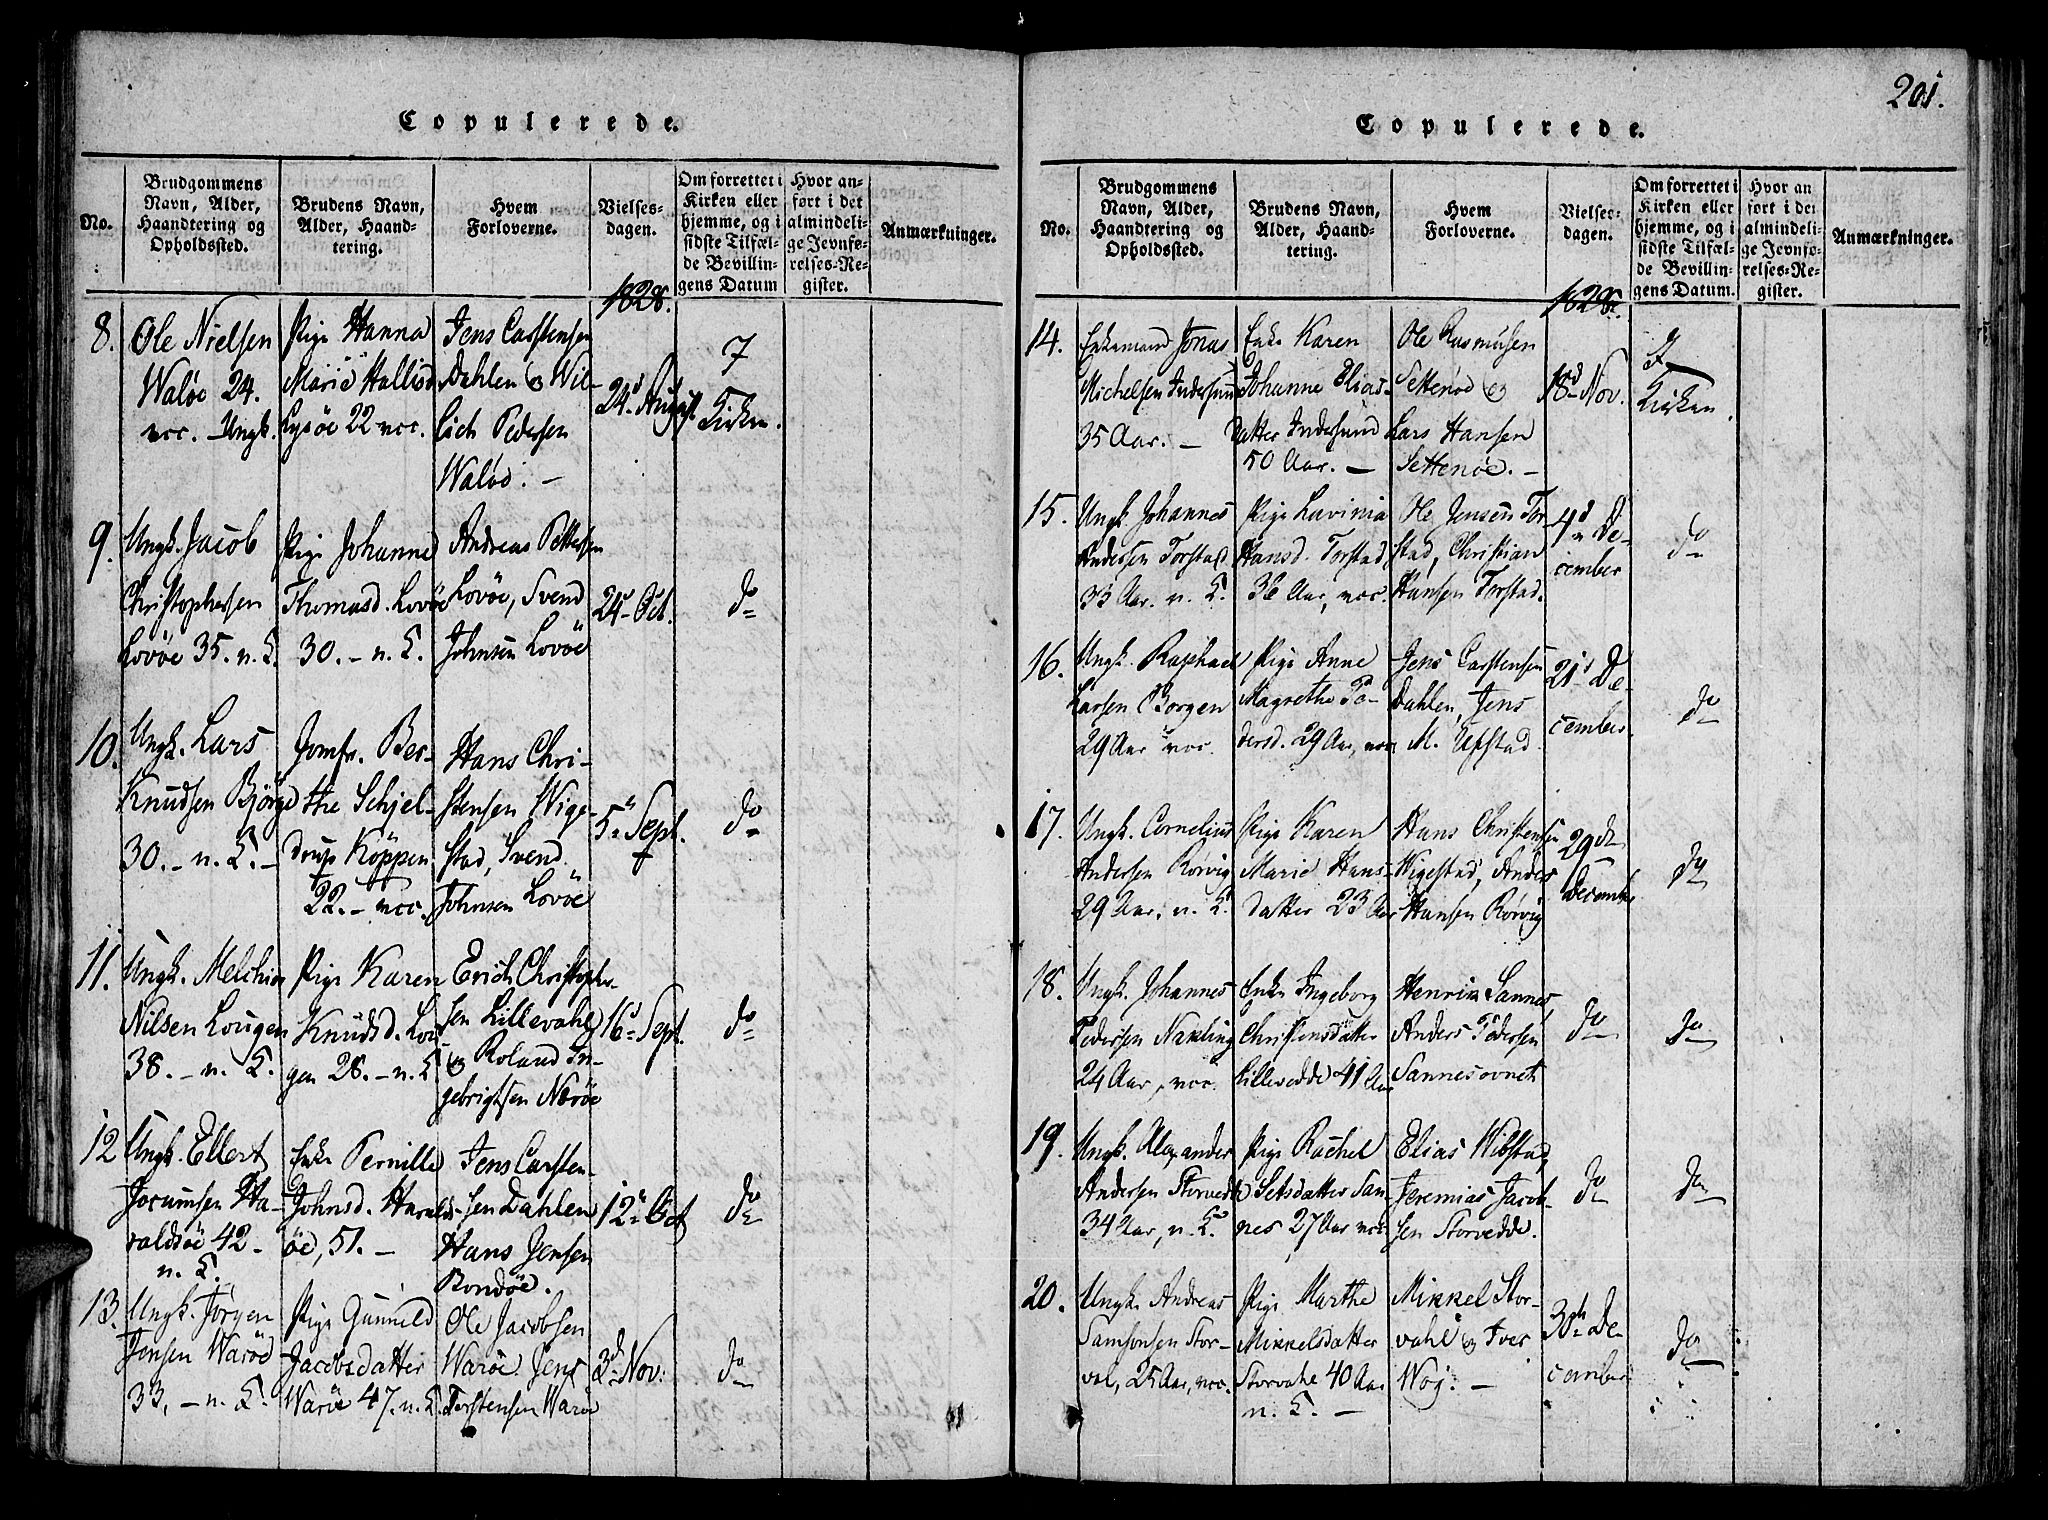 Copulerede.
No.
Brudgommens
Navn, Alder,
Haandtering og
Opholdssted.
Brudens Navn,
Alder, Haand-
tering.
Hvem
Forloverne.
Vielses-
dagen.
Om forrettet i
Kirken eller
hjemme, og i
sidste Tilfæl-
de Bevillin-
gens Datum
Hvor an-
ført i det
almindeli-
ge Jevnfø-
relses-Re-
gister.
Anmærkninger.
1828.
8.
Ole Nielsen
Waløe 24.
vcc. Ungk.
Pige Hanna
Marie Hallisd
Lysøe 22 vcc.
Jens Carstensen
Dahlen og Wil-
lich Pedersen
Waløe. —
24d August
7
Kirken.
9.
Ungk. Jacob
Christophersen
Lovöe 35. n. L.
Pige Johanne
Thomasd. Lovöe
30. — n. L.
Andreas Pettersen
Lovöe, Svend
Johnsen Lovöe
24d Oct.
do
10.
Ungk. Lars
Knudsen Bjørge
30. — n. L. —
Jomfr. Ber-
the Schjel-
drup Köppen
22. — vcc.
Hans Chri-
stensen Wige-
stad, Svend
Johnsen Lovöe
5 Sept.
do
11.
Ungk. Melchior
Nilsen Lougen
38. — n. L.
Pige Karen
Knudsd. Lou
gen 28. — n. L
Erich Christophe-
sen Lillevahl
og Roland In-
gebrigtsen Nærøe
16d Sept.
do
12
Ungk. Ellert
Jocumsen Ha-
raldsöe 42 —
n. L.
Enke Pernille
Johnsd. Haralds-
öe, 51. —
Jens Carsten-
sen Dahlen
Hans Jensen
Rondöe.
12 Oct
do
13.
Ungk. Jørgen
Jensen Waröe
33, — n. L.
Pige Gunnild
Jacobsdatter
Waröe 47. n. L.
Ole Jacobsen
Waröe Jens
Torstensen Waröe
3d Nov.
do
201.
Copulerede.
No.
Brudgommens
Navn, Alder,
Haandtering og
Opholdssted.
Brudens Navn,
Alder, Haand-
tering.
Hvem
Forloverne.
Vielses-
dagen.
Om forrettet i
Kirken eller
hjemme, og i
sidste Tilfæl-
de Bevillin-
gens Datum.
Hvor an
ført i det
almindeli-
ge Jevnfø-
relses-Re-
gister.
Anmærkninger.
1828.
14.
Enkemand Jonas
Michelsen Indersund
35 Aar. —
Enke Karen
Johanne Elias-
datter Indersund
50 Aar. —
Ole Rasmusen
Settenöe og
Lars Hansen
Settenöe. —
18d Nov.
I
Kirken.
15.
Ungk Johannes
Andersen Torstad
33 Aar. n. L.
Pige Lavinia
Hansd. Torstad
36 Aar, vcc.
Ole Jensen Tor
stad, Christian
Hansen Torstad.
4d De-
cember
do
16.
Ungk. Raphael
Larsen Borgen
29 Aar vcc.
Pige Anne
Magrethe Pe-
dersd. 29 Aar, vcc
Jens Carstensen
Dahlen, Jens
M. Ufstad.
21d De-
cember.
do
17.
Ungk. Cornelius
Andersen Rörvig
29 Aar, n. L.
Pige Karen
Marie Hans-
datter 23 Aar
Hans Christensen
Wigestad, Anders
Hansen Rörvig
29de
December
do
18.
Ungk. Johannes
Pedersen Nakling
24 Aar, vcc.
Enke Ingeborg
Christensdatter
Lillevedde 41 Aar
Henrik Sannes,
Anders Pedersen
Sannesovnet
do
do
19.
Ungk. Alexander
Andersen Storvedde
34 Aar, n. L.
Pige Rachel
Setsdatter San-
nes 27 Aar vcc
Elias Wibstad,
Jeremias Jacob-
sen Storvedde.
do
do
20.
Ungk. Andreas
Samsonsen Stor-
val, 25 Aar, vcc.
Pige Marthe
Mikkelsdatter
Storvahl 40 Aar
n. L. —
Mikkel Stor-
vahl og Iver
Wog. —
30te De-
cember
do